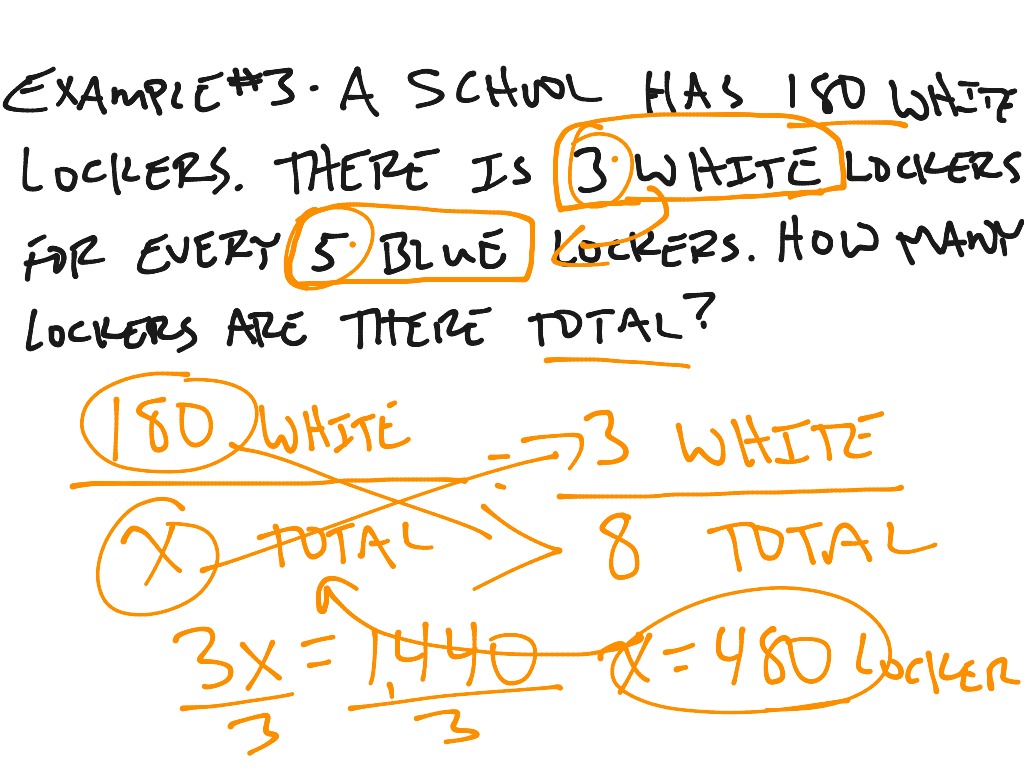 EXAMPLE #3. A SCHOOL HAS 180 WHITE
LOCKERS. THERE IS 3 WHITE LOCKERS
FOR EVERY 5 BLUE LOCKERS. HOW MANY
LOCKERS ARE THERE TOTAL?
180 WHITE = 3 WHITE
X TOTAL 8 TOTAL
3X = 1,440 X = 480 LOCKER
3 3